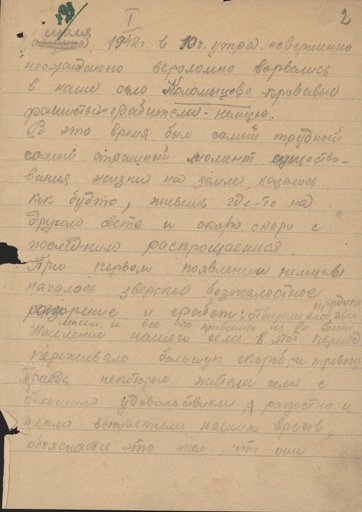 2
I
июля
1942 г. в 10 ч. утра совершенно
неожиданно вероломно ворвались
в наше село Коломыцево кровавые
фашисты-грабители - немцы.
В это время был самый трудный
самый страшный момент существо-
вания жизни на земле казалось
как будто, живешь где-то на
другом свете и скоро скоро с
последними распрощаешься.
При первом появлении немцев
началось зверское безжалостное
разорение и грабеж;
Население нашего села в этот период
переживало большую скорбь и тревогу
Правда некоторые жители села с
большим удовольствием, радостно и
тепло встретили наших врагов,
объясняется это тем, что они